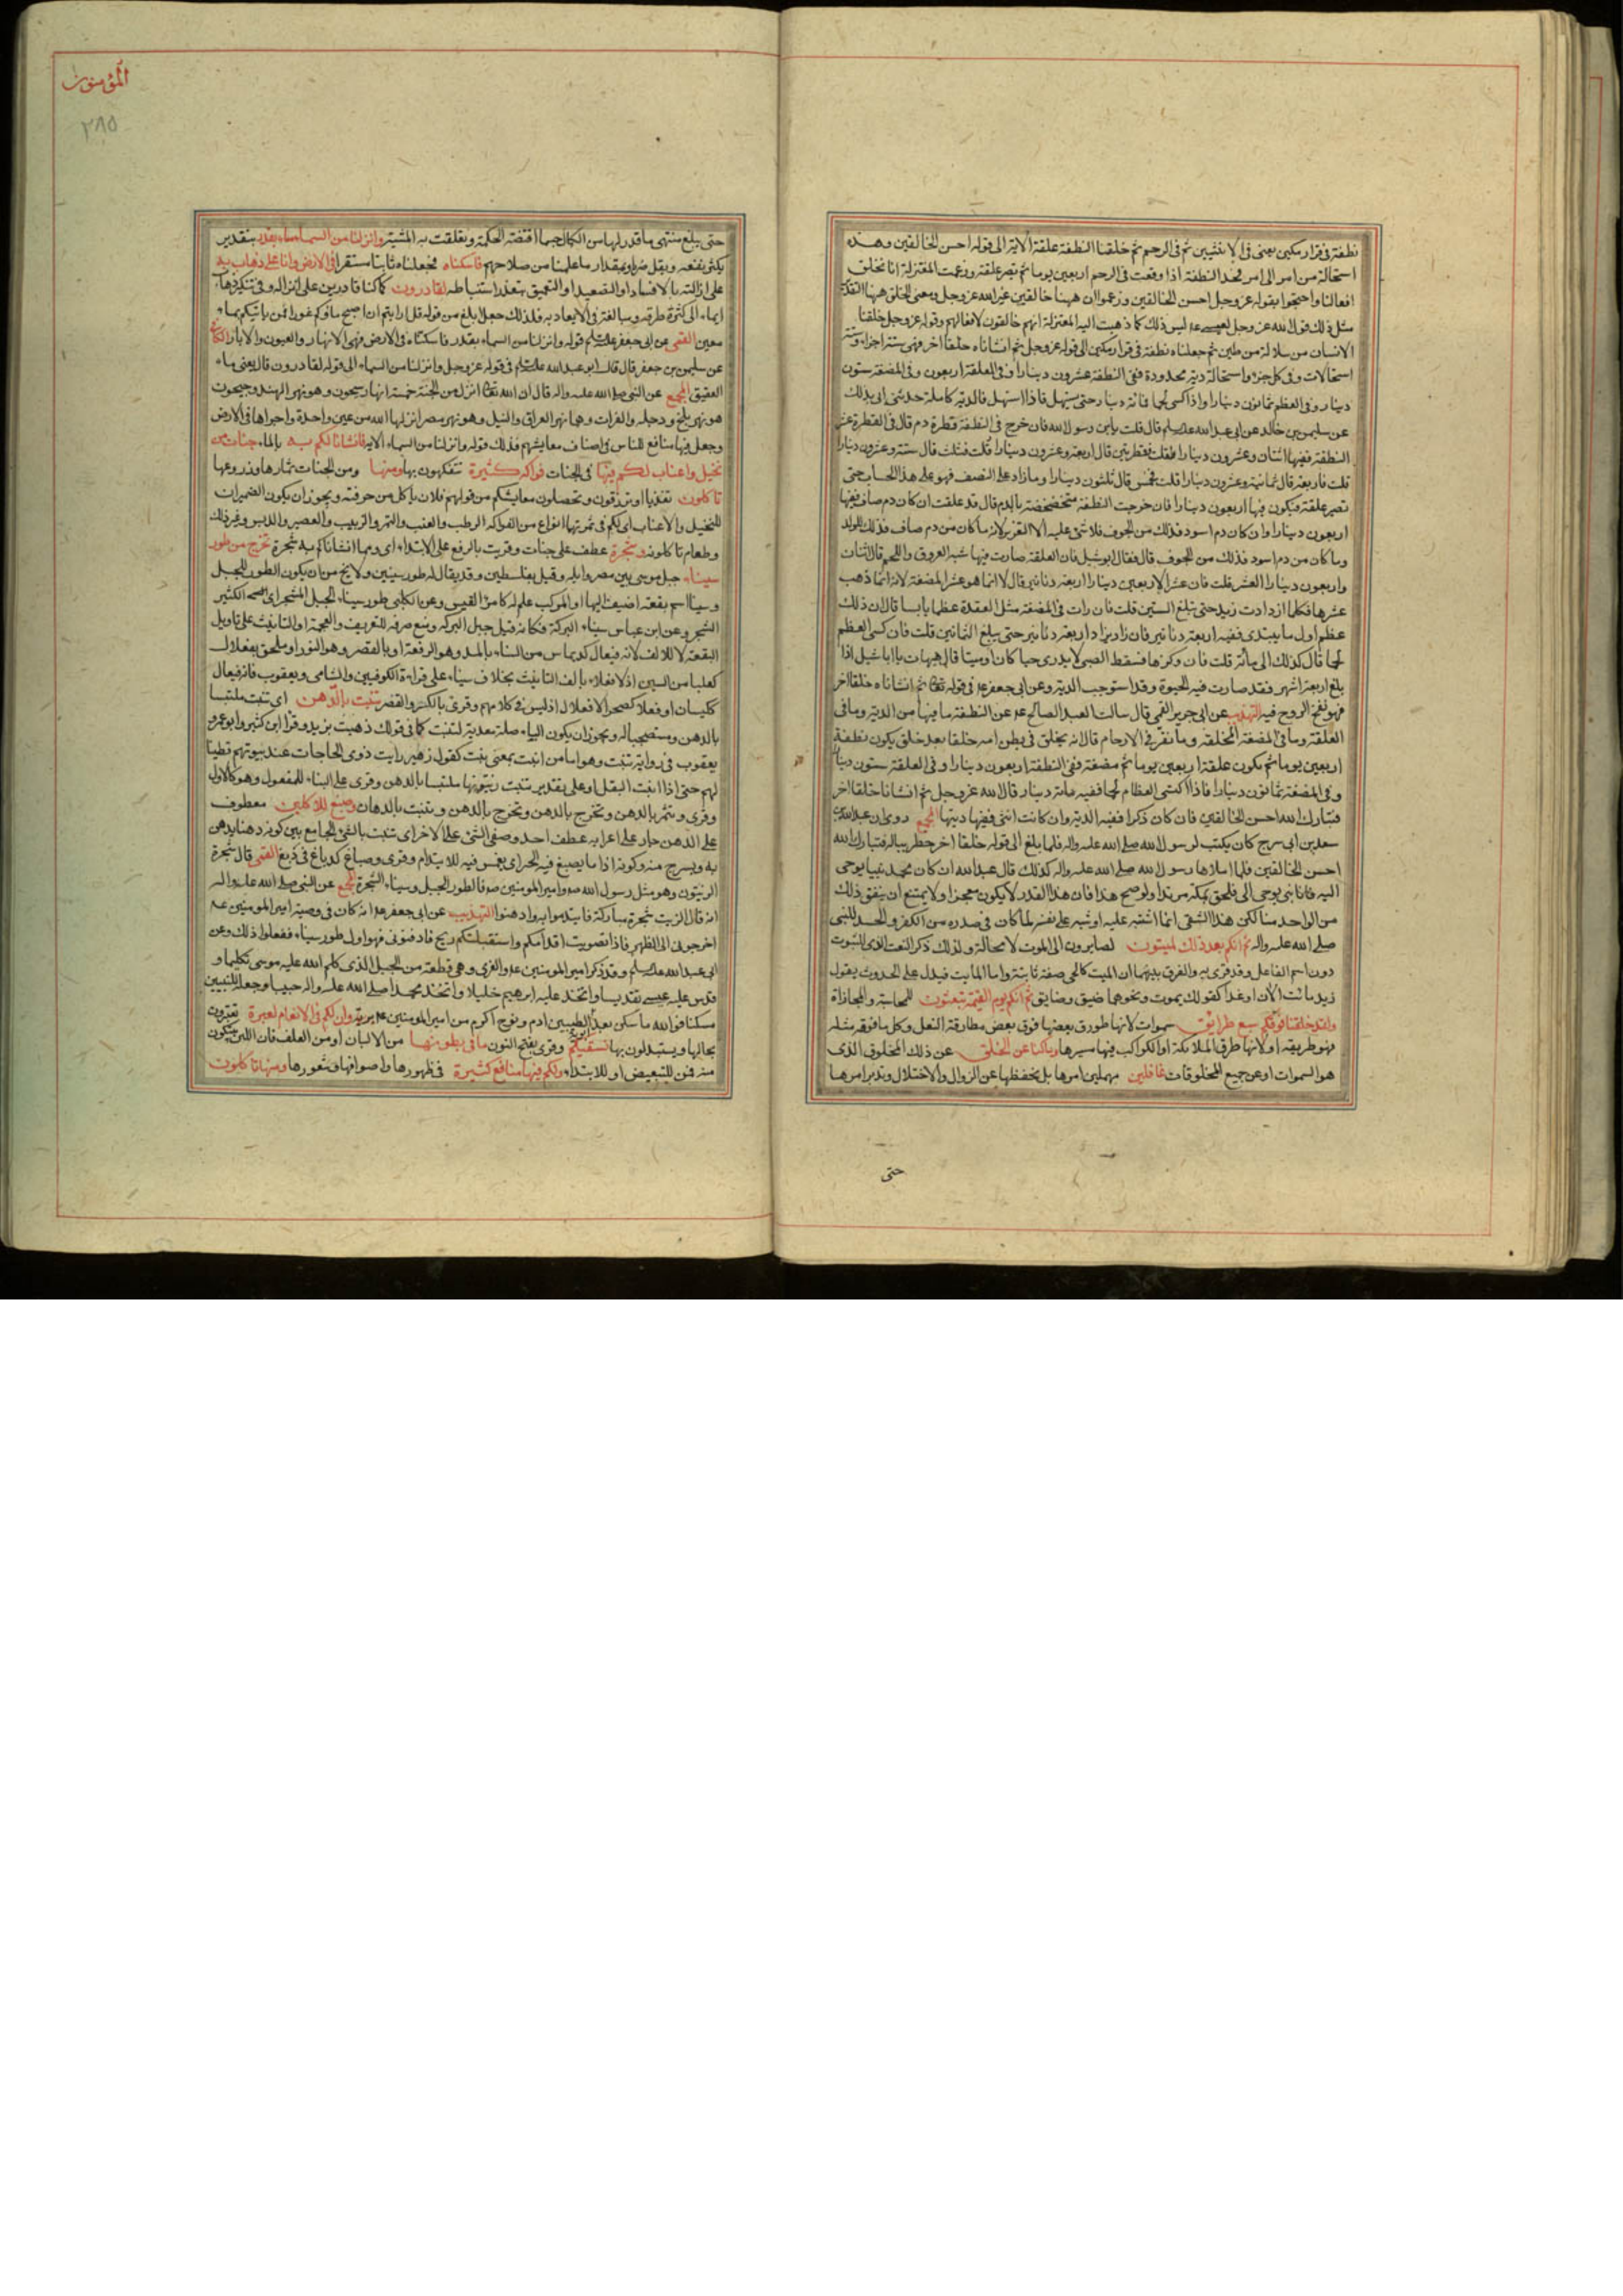 نطفة في قرار مكين يعنى في الانثيين ثم في الرحم ثم خلقنا النطفة علقة الاية الى قوله احسن الخالقين وهذه
استحالة من امر الى امر فحد النطفة اذا وقعت في الرحم اربعين يوما ثم تصير علقة وزعمت المعتزلة انا نخلق
افعالنا واحتجوا بقوله عز وجل احسن الخالقين وزعموا ان ههنا خالقين غير الله عز وجل ومعنى الخلق ههنا التقدير
مثل ذلك قول الله عز وجل لعيسى ع ليس ذلك كما ذهبت اليه المعتزلة انهم خالقون لافعالهم وقوله عز وجل خلقنا
الانسان من سلالة من طين ثم جعلناه نطفة في قرار مكين الى قوله عز وجل ثم انشاناه خلقا اخر فهي ستة اجزاء وستة
استحالات وفي كل جزء واستحالة دية محدودة ففى النطفة عشرون دينارا وفي العلقة اربعون وفي المضغة ستون
دينار وفي العظم ثمانون دينارا واذا كسى لحما فمائة دينار حتى يستهل فاذا استهل فالدية كاملة حدثنى ابى بذلك
عن سليمن بن خالد عن ابى عبد الله عليه السلام قال قلت يابن رسول الله فان خرج في النطفة قطرة دم قال في القطرة عشر
النطفة ففيها اثنان وعشرون دينارا فقلت فقطرتين قال اربعة وعشرون دينارا قلت فثلث قال ستة وعشرون دينارا
قلت فاربعة قال ثمانية وعشرون دينارا قلت فخمس قال ثلثون دينارا وما زاد على النصف فهو على هذا الحساب حتى
تصير علقة فيكون فيها اربعون دينارا فان خرجت النطفة متخضخضة بالدم قال قد علقت ان كان دم صاف ففيها
اربعون دينارا وان كان دم اسود فذلك من الجوف فلا شئ عليه الا التعزير لانه ما كان من دم صاف فذلك للولد
وما كان من دم اسود فذلك من الجوف قال فقال ابو شبل فان العلقة صارت فيها شبه العروق واللحم قال اثنان
واربعون دينارا العشر قلت فان عشر الاربعين دينارا اربعة دنانير قال لا انما هو عشر المضغة لانه انما ذهب
عشرها فكلما ازدادت زيد حتى تبلغ الستين قلت فان رات في المضغة مثل العقدة عظما يابسا قال ان ذلك
عظم اول ما يبتدى ففيه اربعة دنانير فان زاد فزاد اربعة دنانير حتى يبلغ الثمانين قلت فان كسى العظم
لحما قال كذلك الى مائة قلت فان وكزها فسقط الصبى لا يدرى حيا كان او ميتا قال هيهات يا ابا شبل اذا
بلغ اربعة اشهر فقد صارت فيه الحيوة وقد استوجب الدية وعن ابى جعفر ع في قوله تعالى ثم انشاناه خلقا اخر
فهو نفخ الروح فيه التهذيب عن ابى جرير القمى قال سالت العبد الصالح ع عن النطفة ما فيها من الدية وما في
العلقة وما في المضغة المخلقة وما تقر في الارحام قال انه يخلق في بطن امه خلقا بعد خلق يكون نطفة
اربعين يوما ثم يكون علقة اربعين يوما ثم مضغة ففى النطفة اربعون دينارا وفي العلقة ستون دينارا
وفي المضغة ثمانون دينارا فاذا اكتسى العظام لحما ففيه مائة دينار قال الله عز وجل ثم انشاناه خلقا اخر
فتبارك الله احسن الخالقين فان كان ذكرا ففيه الدية وان كانت انثى ففيها ديتها المجمع روى ان عبد الله بن
سعد بن ابى سرح كان يكتب لرسول الله صلى الله عليه واله فلما بلغ الى قوله خلقا اخر خطر بباله فتبارك الله
احسن الخالقين فلما املاها رسول الله صلى الله عليه واله كذلك قال عبد الله ان كان محمد نبيا يوحى
اليه فانا نبى يوحى الى فلحق بمكة مرتدا ولو صح هذا فان هذا القدر لا يكون معجزا ولا يمتنع ان يتفق ذلك
من الواحد منا لكن هذا الشقى انما اشتبه عليه او شبه على نفسه لما كان في صدره من الكفر والحسد للنبى
صلى الله عليه واله ثم انكم بعد ذلك لميتون لصايرون الى الموت لا محالة ولذلك ذكر النعت الذى للثبوت
دون اسم الفاعل وقد قرئ به والفرق بينهما ان الميت كالحى صفة ثابتة واما المايت فيدل على الحدوث يقول
زيد مائت الان او غدا كقولك يموت ونحوهما ضيق وضايق ثم انكم يوم القيمة تبعثون للمحاسبة والمجازاة
ولقد خلقنا فوقكم سبع طرائق سموات لانها طورق بعضها فوق بعض مطارقة النعل وكل ما فوقه مثله
فهو طريقه او لانها طرق الملائكة او الكواكب فيها مسيرها وما كنا عن الخلق عن ذلك المخلوق الذى
هو السموات او عن جميع المخلوقات غافلين مهملين امرها بل نحفظها عن الزوال والاختلال وندبر امرها
حتى
المؤمنون
٢٨٥
حتى يبلغ منتهى ما قدر لها من الكمال حسبما اقتضته الحكمة وتعلقت به المشية وانزلنا من السماء ماء بقدر بتقدير
يكثر نفعه ويقل ضره او بمقدار ما علمنا من صلاحهم فاسكناه فجعلناه ثابتا مستقرا في الارض وانا على ذهاب به
على ازالته بالافساد او التصعيد او التعميق بتعذر استنباطه لقادرون كما كنا قادرين على انزاله وفي تنكير ذهاب
ايماء الى كثرة طرقه ومبالغة في الايعاد به فلذلك جعل ابلغ من قوله قل ارايتم ان اصبح ماؤكم غورا فمن ياتيكم بماء
معين القمى عن ابى جعفر عليه السلام قوله وانزلنا من السماء بقدر فاسكناه في الارض فهى الانهار والعيون والابار الكافى
عن سليمن بن جعفر قال قال ابو عبد الله عليه السلام في قوله عز وجل وانزلنا من السماء الى قوله لقادرون قال يعنى ماء
العقيق المجمع عن النبى صلى الله عليه واله قال ان الله تعالى انزل من الجنة خمسة انهار سيحون وهو نهر الهند وجيحون
هو نهر بلخ ودجلة والفرات وهما نهر العراق والنيل وهو نهر مصر انزلها الله من عين واحدة واجراها في الارض
وجعل فيها منافع للناس في اصناف معايشهم فذلك قوله وانزلنا من السماء الاية فانشانا لكم به بالماء جنات من
نخيل واعناب لكم فيها في الجنات فواكه كثيرة تتفكهون بها ومنها ومن الجنات ثمارها وزروعها
تاكلون تغذيا او ترزقون وتحصلون معايشكم من قولهم فلان ياكل من حرفته ويجوز ان يكون الضميران
للنخيل والاعناب اى لكم في ثمرتها انواع من الفواكه الرطب والعنب والتمر والزبيب والعصير والدبس وغير ذلك
وطعام تاكلونه وشجرة عطف على جنات وقريت بالرفع على الابتداء اى ومما انشانا لكم به شجرة تخرج من طور
سيناء جبل موسى بين مصر وايله وقيل بفلسطين وقد يقال له طور سينين ولا يخ من ان يكون الطور للجبل
وسينا اسم بقعة اضيف اليها او المركب علم له كامرئ القيس وعن الكلبى طور سيناء الجبل المشجر اى الكثير
الشجر وعن ابن عباس سيناء البركة فكانه قيل جبل البركه ومنع صرفه للتعريف والعجمة او التانيث على تاويل
البقعة لا للالف لانه فيعال كديماس من السناء بالمد وهو الرفعة او بالقصر وهو النور او ملحق بفعلال
كعلبا من السين اذ لا فعلاء بالف التانيث بخلاف سيناء على قراءة الكوفيين والشامى ويعقوب فانه فيعال
ككيسان او فعلاء كصحراء لا فعلال اذ ليس في كلامهم وقرئ بالكسر والقصر تنبت بالدهن اى تنبت ملتبسا
بالدهن ومستصحبا له ويجوز ان يكون الباء صلة معدية لتنبت كما في قولك ذهبت بزيد وقرا ابن كثير وابو عمرو
يعقوب في رواية تنبت وهو اما من انبت بمعنى نبت كقول زهير رايت ذوى الحاجات عند بيوتهم قطينا
لهم حتى اذا انبت البقل او على تقدير تنبت زيتونها ملتبسا بالدهن وقرئ على البناء للمفعول وهو كالاول
وقرئ وتثمر بالدهن وتخرج بالدهن وتخرج بالدهن وتنبت بالدهان وصبغ للاكلين معطوف
على الدهن جار على اعرابه عطف احد وصفى الشئ على الاخر اى تنبت بالشئ الجامع بين كونه دهنا يدهن
به ويسرج منه وكونه اداما يصبغ فيه الخبز اى يغمس فيه للايتدام وقرئ وصباغ كدباغ في دبغ القمى قال شجرة
الزيتون وهو مثل رسول الله ص وامير المومنين ص فالطور الجبل وسيناء الشجرة المجمع عن النبى صلى الله عليه واله
انه قال الزيت شجرة مباركة فايتدموا به وادهنوا التهذيب عن ابى جعفر ع انه كان في وصية امير المومنين ع
اخرجونى الى الظهر فاذا تصوبت اقدامكم واستقبلتكم ريح فادفنونى فهو اول طور سيناء ففعلوا ذلك وعن
ابى عبد الله عليه السلام وقد ذكر امير المومنين ع والغرى وهى قطعة من الجبل الذى كلم الله عليه موسى تكليما و
قدس عليه عيسى تقديسا واتخذ عليه ابرهيم خليلا واتخذ محمدا صلى الله عليه واله حبيبا وجعل للنبيين
مسكنا فو الله ما سكن بعد الطيبين ادم ونوح اكرم من امير المومنين ع وان لكم في الانعام لعبرة تعتبرون
بحالها ويستدلون بها نسقيكم وقرئ بفتح النون مما في بطونها من الالبان او من العلف فان اللبن يتكون
منه فمن للتبعيض او للابتداء ولكم فيها منافع كثيرة في ظهورها واصوافها وشعورها ومنها تاكلون